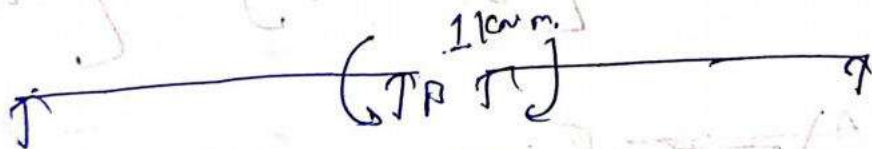 1 kN m.
B